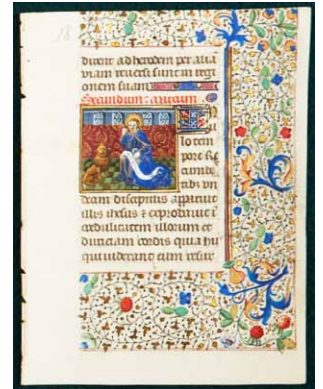 ad herodem per alia
viam reversi sunt in regi
onem suam
Secundum: marcum
lo tem
pore Re
cumbe
tibus vn
decim discipulis apparuit
illis ihesus et exprobavit i
credulitatem illorum et
duriciam cordis quia hii
qui viderant eum resur